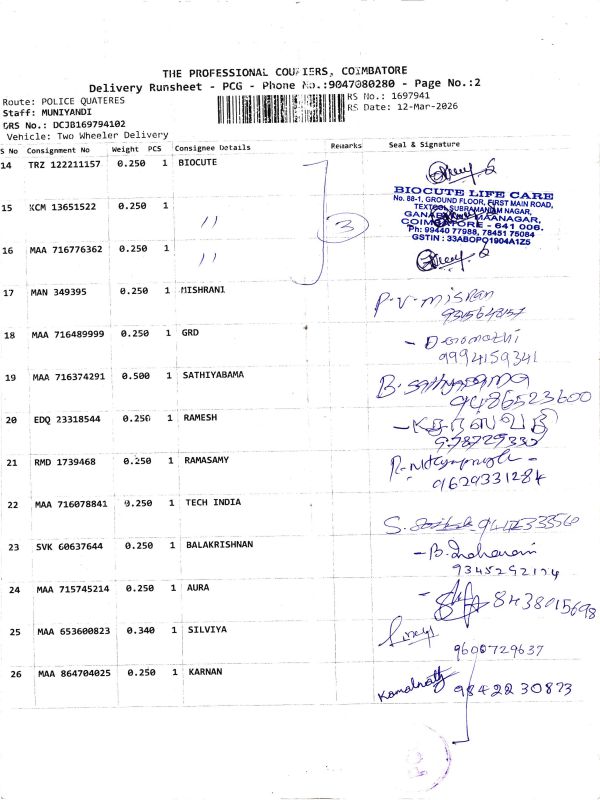 THE PROFESSIONAL COURIERS, COIMBATORE
Delivery Runsheet - PCG - Phone No.:9047080280 - Page No.:2
Route: POLICE QUATERES
RS No.: 1697941
Staff: MUNIYANDI
RS Date: 12-Mar-2026
DRS No.: DCJB169794102
Vehicle: Two Wheeler Delivery
S No Consignment No Weight PCS Consignee Details Remarks Seal & Signature
14 TRZ 122211157 0.250 1 BIOCUTE
BIOCUTE LIFE CARE
No. 88-1, GROUND FLOOR, FIRST MAIN ROAD,
15 KCM 13651522 0.250 1 〃
TEXTOOL SUBRAMANIAM NAGAR,
GANAPATHY MAANAGAR,
COIMBATORE - 641 006.
3
Ph: 99440 77988, 78451 75084
GSTIN : 33ABOPO1904A1Z5
16 MAA 716776362 0.250 1 〃
17 MAN 349395 0.250 1 MISHRANI
P. V. Misran
18 MAA 716489999 0.250 1 GRD
9994159341
19 MAA 716374291 0.500 1 SATHIYABAMA
B. Sathyabama
9486523600
20 EDQ 23318544 0.250 1 RAMESH
21 RMD 1739468 0.250 1 RAMASAMY
9629331284
22 MAA 716078841 0.250 1 TECH INDIA
23 SVK 60637644 0.250 1 BALAKRISHNAN
24 MAA 715745214 0.250 1 AURA
8438015698
25 MAA 653600823 0.340 1 SILVIYA
9600729637
26 MAA 864704025 0.250 1 KARNAN
Kamalnath 9842230873